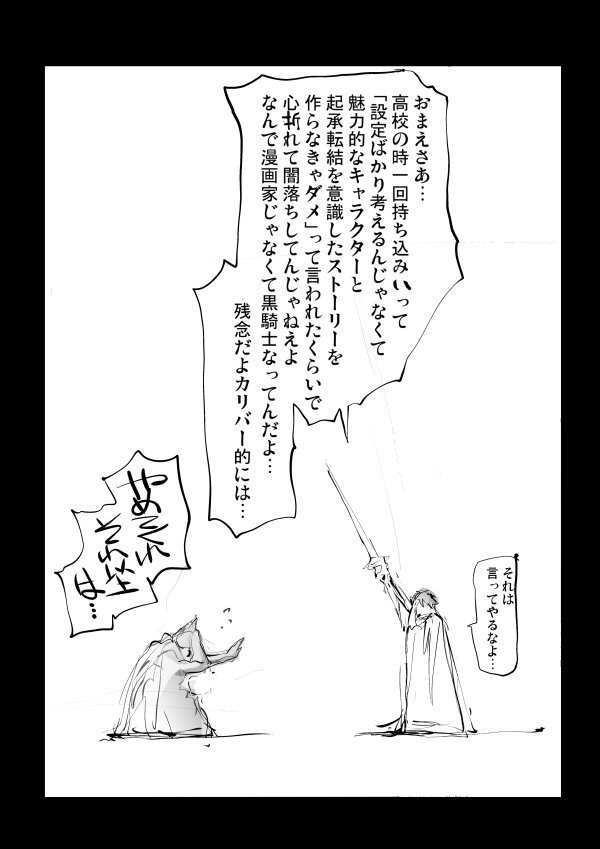 おまえさあ…
高校の時一回持ち込みいって
「設定ばかり考えるんじゃなくて
魅力的なキャラクターと
起承転結を意識したストーリーを
作らなきゃダメ」って言われたくらいで
心折れて闇落ちしてんじゃねえよ
なんで漫画家じゃなくて黒騎士なってんだよ…
残念だよカリバー的には…
それは
言ってやるなよ…
やめてくれ
それ以上
は…